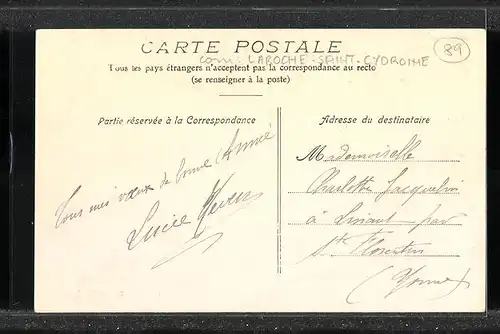 CARTE POSTALE
com: LAROCHE-SAINT-CYDROINE
89
Tous les pays étrangers n'acceptent pas la correspondance au recto
(se renseigner à la poste)
Partie réservée à la Correspondance
Tous mes vœux de bonne Année
Lucie
Adresse du destinataire
Mademoiselle
Charlotte Jacquelin
à par
St Florentin
(Yonne)